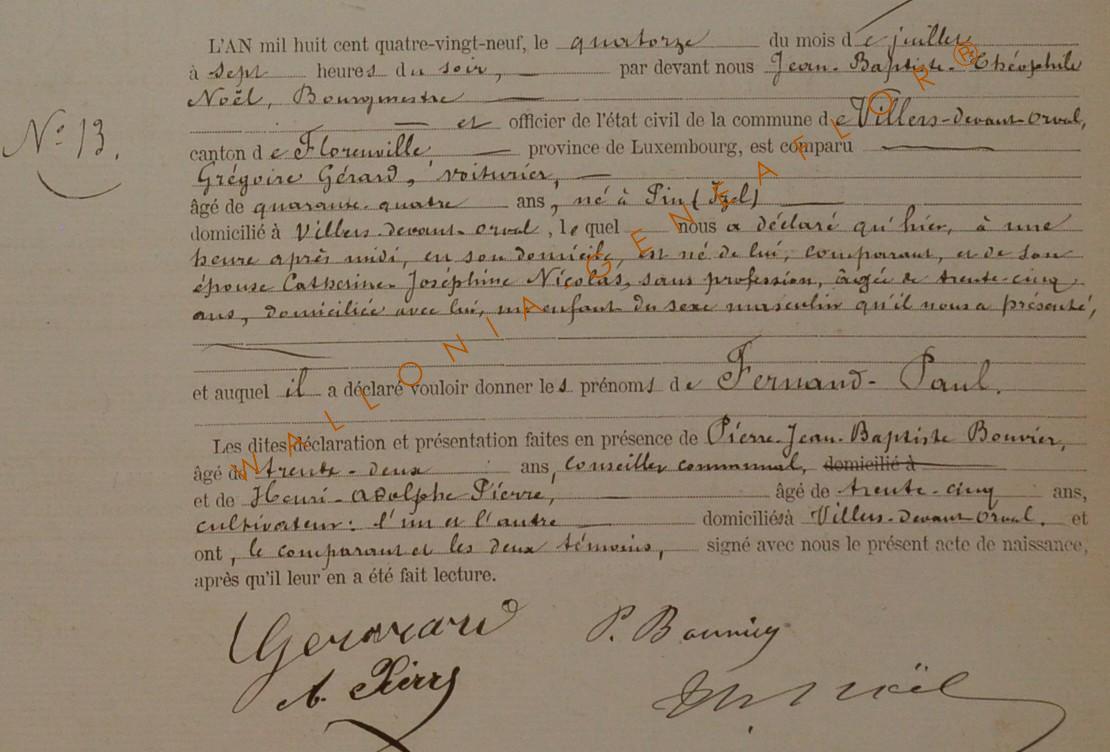 L'AN mil huit cent quatre-vingt-neuf, le quatorze du mois de juillet
à sept heures du soir, par devant nous Jean-Baptiste-Théophile
Noël, Bourgmestre
et officier de l'état civil de la commune de Villers-devant-Orval,
N° 13.
canton de Florenville province de Luxembourg, est comparu
Grégoire Gérard, voiturier,
âgé de quarante-quatre ans, né à Pin (Izel)
domicilié à Villers-devant-Orval, lequel nous a déclaré qu'hier, à une
heure après midi, en son domicile, est né de lui, comparant, et de son
épouse Catherine-Joséphine Nicolas, sans profession, âgée de trente-cinq
ans, domiciliée avec lui, un enfant du sexe masculin qu'il nous a présenté,
et auquel il a déclaré vouloir donner les prénoms de Fernand-Paul.
Les dites déclaration et présentation faites en présence de Pierre-Jean-Baptiste Bouvier,
âgé de trente-deux ans, conseiller communal, domicilié à
et de Henri-Adolphe Pierre, âgé de trente-cinq ans,
cultivateur: l'un et l'autre domiciliés à Villers-devant-Orval. et
ont, le comparant et les deux témoins, signé avec nous le présent acte de naissance,
après qu'il leur en a été fait lecture.
P. Bouvier
A. Pierre
Noël
WALLONIA GENEAFLOR®